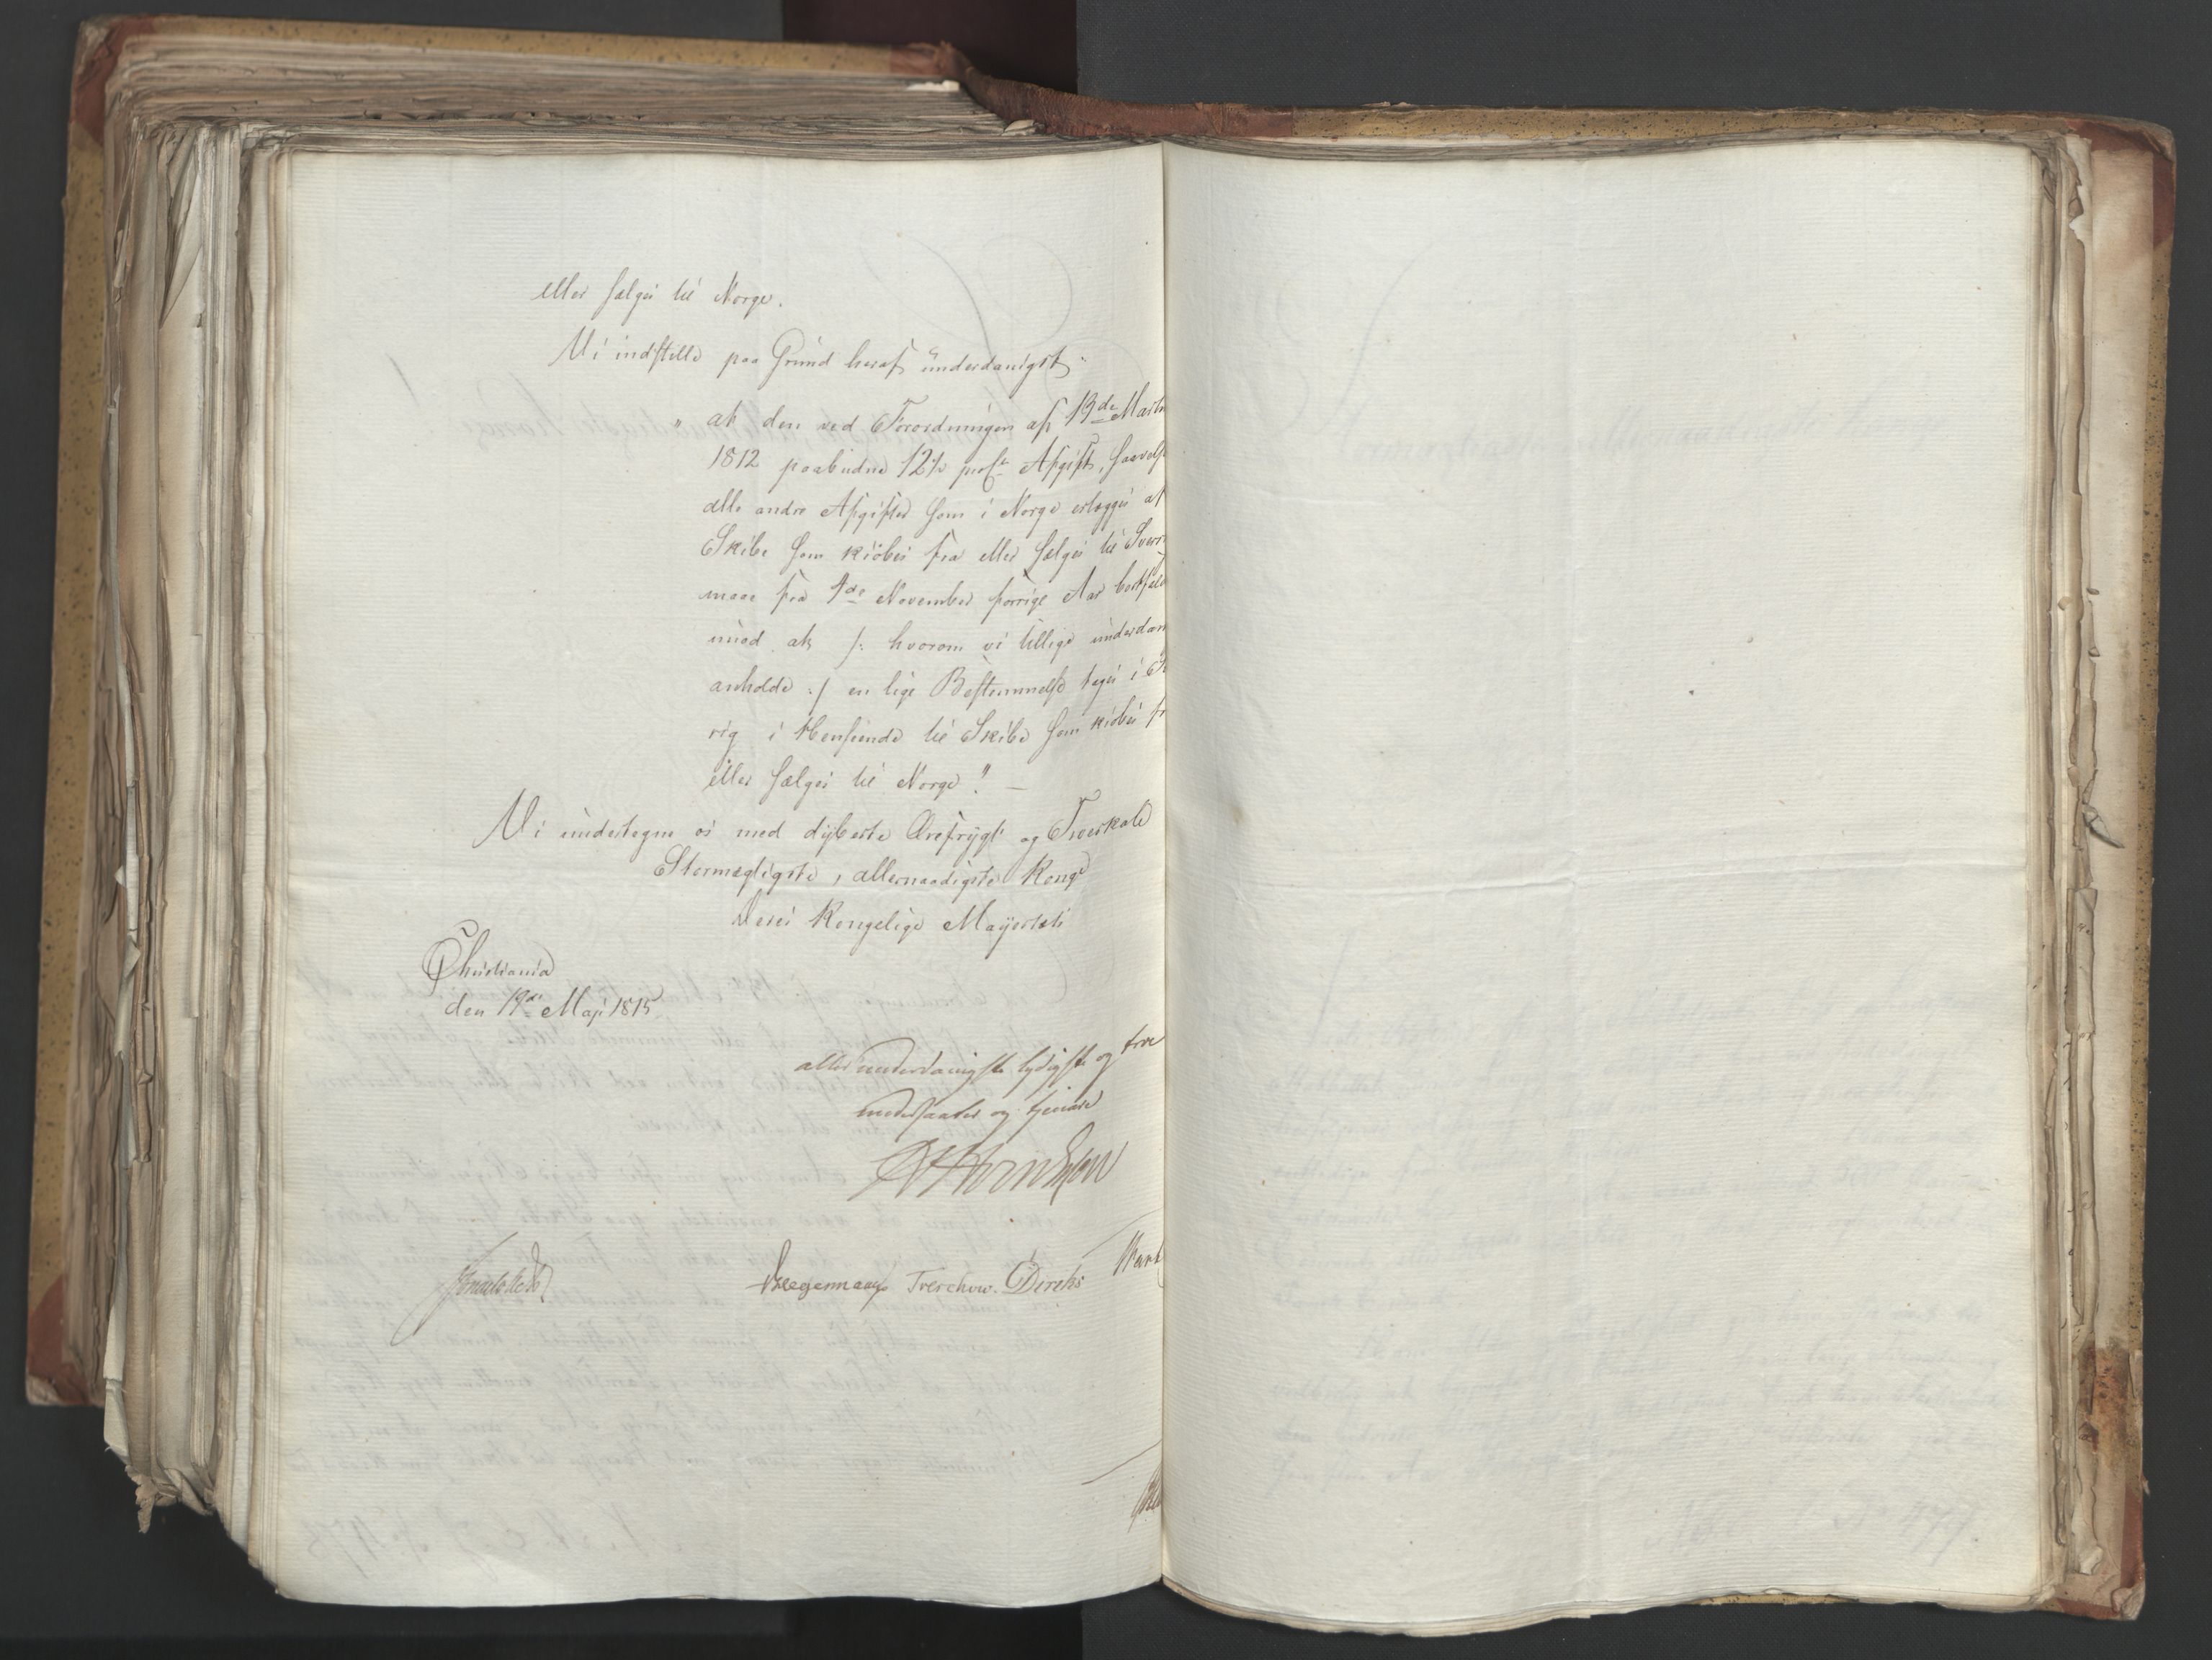 eller sælges til Norge.
Vi indstille paa Grund heraf underdanigst:
" at den ved Forordningen af 13de Marts
1812 paabudne 12½ proCt Afgift, saavels
alle andre Afgifter som i Norge erlægges af
Skibe som kiöbes fra eller sælges til Sverr
maae fra 4de November forrige Aar bortfald
mod at /: hvorom vi tillige underdan
anholde :/ en lige Bestemmelse tages i Sv
rig i Henseende til Skibe som kiöbes fr
eller sælges til Norge." —
Vi undertegne os med dybeste Ærefrygt og Troeskab
Stormægtigste, allernaadigste Konge
Deres Kongelige Mayestæts
Christiania
den 19de Maji 1815
allerunderdanigste lydigste og troe
undersaatter og tjenere
Sommerhielm
Hegermann Treschow. Diriks